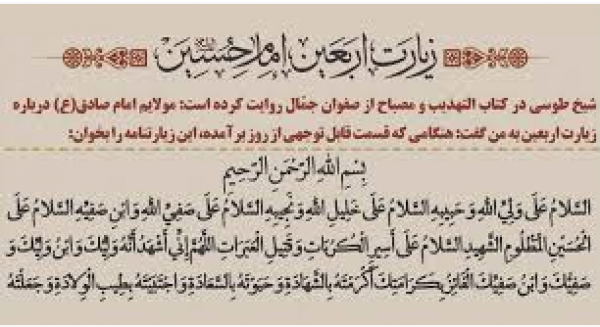 زیارت اربعین امام حسین
شیخ طوسی در کتاب التهذیب و مصباح از صفوان جمّال روایت کرده است: مولایم امام صادق(ع) درباره
زیارت اربعین به من گفت: هنگامی که قسمت قابل توجهی از روز برآمده، این زیارتنامه را بخوان:
بِسْمِ اللهِ الرَّحْمنِ الرَّحیمِ
السَّلامُ عَلی وَلِیِّ اللهِ وَ حَبیبِهِ السَّلامُ عَلی خَلیلِ اللهِ وَ نَجیبِهِ السَّلامُ عَلی صَفِیِّ اللهِ وَ ابْنِ صَفِیِّهِ السَّلامُ عَلَی
الْحُسَیْنِ الْمَظْلُومِ الشَّهیدِ السَّلامُ عَلی أَسیرِ الْکُرُباتِ وَ قَتیلِ الْعَبَراتِ اللّهُمَّ إِنّی أَشْهَدُ أَنَّهُ وَلِیُّکَ وَ ابْنُ وَلِیِّکَ وَ
صَفِیُّکَ وَ ابْنُ صَفِیِّکَ الْفائِزُ بِکَرامَتِکَ أَکْرَمْتَهُ بِالشَّهادَةِ وَ حَبَوْتَهُ بِالسَّعادَةِ وَ اجْتَبَیْتَهُ بِطیبِ الْوِلادَةِ وَ جَعَلْتَهُ